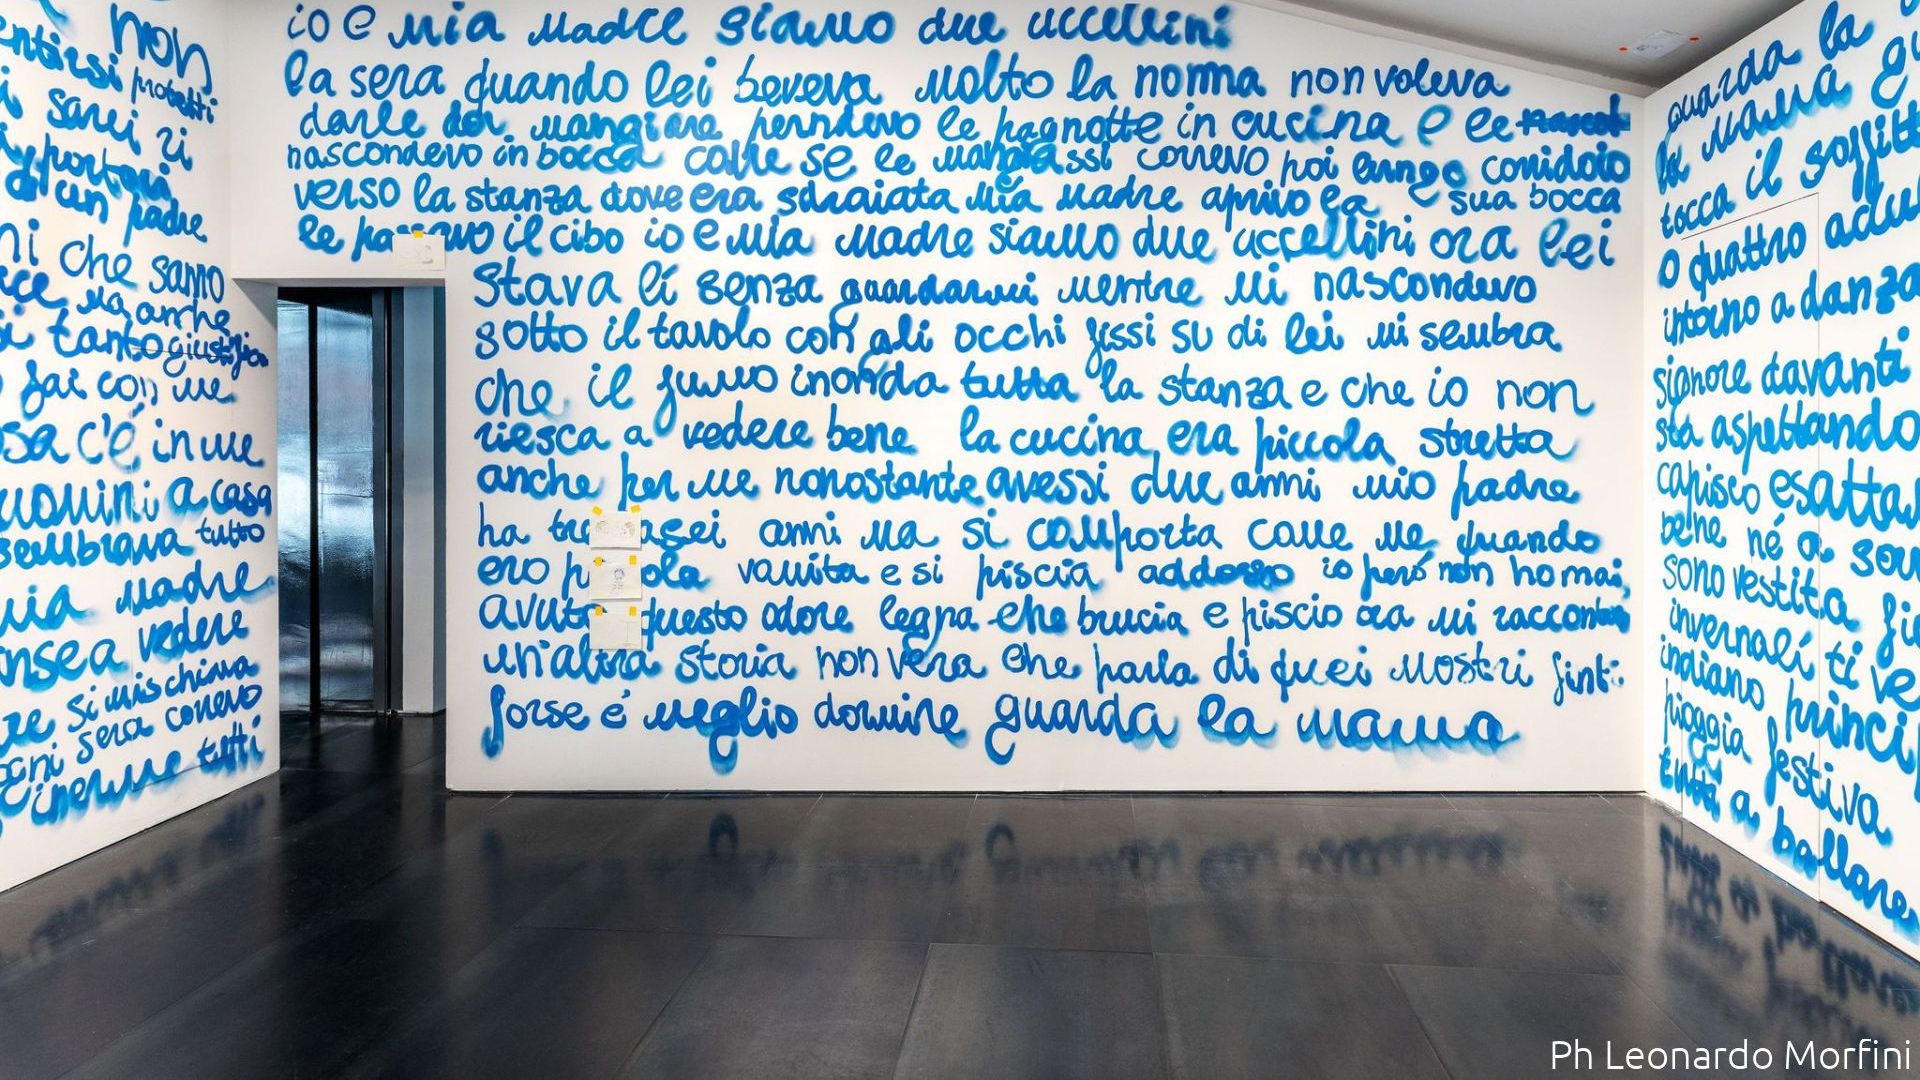 non
entirsi protetti
i sarei ri
portarci
di un padre
ni che sanno
ce ma anche
si tanto
fai con me
osa c'é in me
uomini a casa
sembrava tutto
mia madre
nsea vedere
re si mischiava
ogni sera correvo
inerme tutti
io e mia madre siamo due uccellini
la sera quando lei beveva molto la nonna non voleva
darle da mangiare prendevo le pagnotte in cucina e le
nascondevo in bocca come se le mangiassi correvo poi lungo corridoio
verso la stanza dove era sdraiata mia madre aprivo la sua bocca
le pa vo il cibo io e mia madre siamo due uccellini ora lei
stava lí senza guardarmi mentre mi nascondevo
sotto il tavolo con gli occhi fissi su di lei mi sembra
che il fumo inonda tutta la stanza e che io non
riesca a vedere bene la cucina era piccola stretta
anche per me nonostante avessi due anni mio padre
ha tre asei anni ma si comporta come me quando
ero p ola vomita e si piscia addosso io peró non ho mai
avuto questo odore legna che brucia e piscio ora mi racconta
un'altra storia non vera che parla di quei mostri finti
forse é meglio dormire guarda la mamma
guarda la
la mamma gu
tocca il soffitt
o quattro adul
intorno a danza
signore davanti
sta aspettando
capisco esattam
bene né a sou
sono vestita fi
invernali ti ve
indiano princi
pioggia festiva
tutti a ballare
Ph Leonardo Morfini